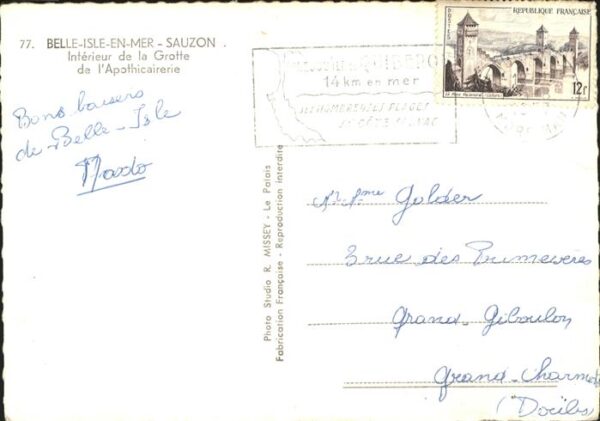 77. BELLE-ISLE-EN-MER - SAUZON
Intérieur de la Grotte
de l'Apothicairerie
Bons baisers
de Belle-Isle
QUIBERON
14 km en mer
POSTES
REPUBLIQUE FRANÇAISE
12f
Photo Studio R. MISSEY - Le Palais
Fabrication Française - Reproduction interdite
Mr Mme Golder
3 rue des Primevères
Grand-Charmont
(Doubs